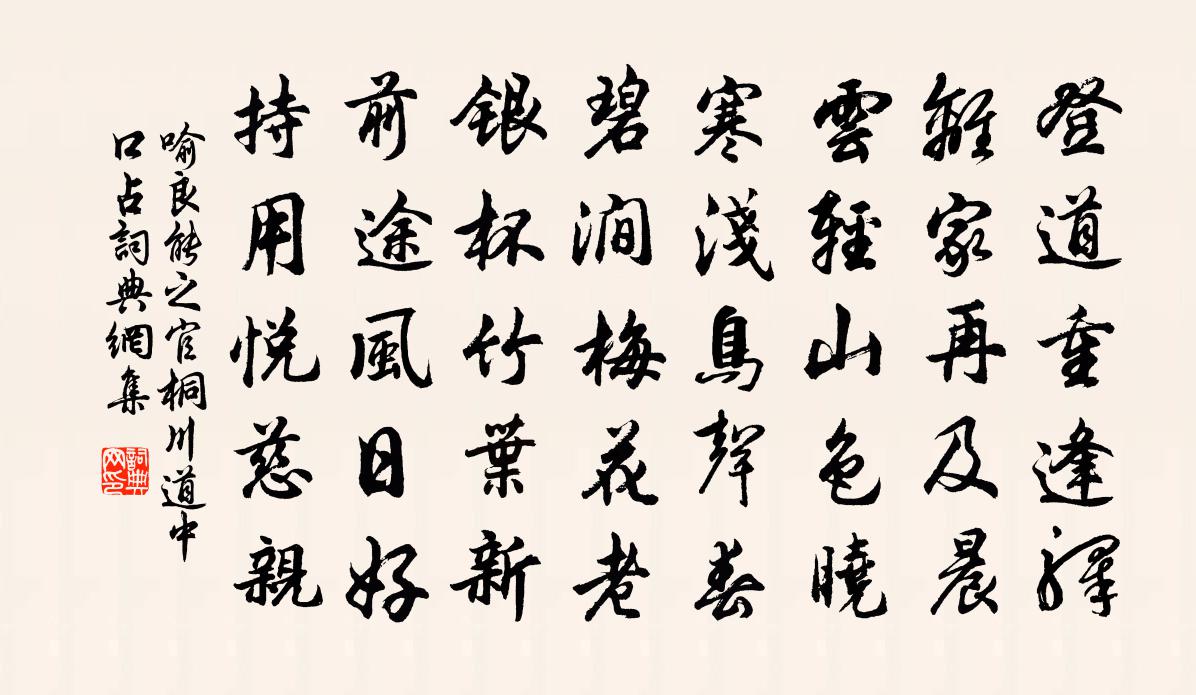 登道重逢驛
離家再及晨
雲輕山色曉
寒淺鳥聲春
碧澗梅花老
銀杯竹葉新
前途風日好
持用悅慈親
喻良能之官桐川道中
口占詞典網集
詞典網印